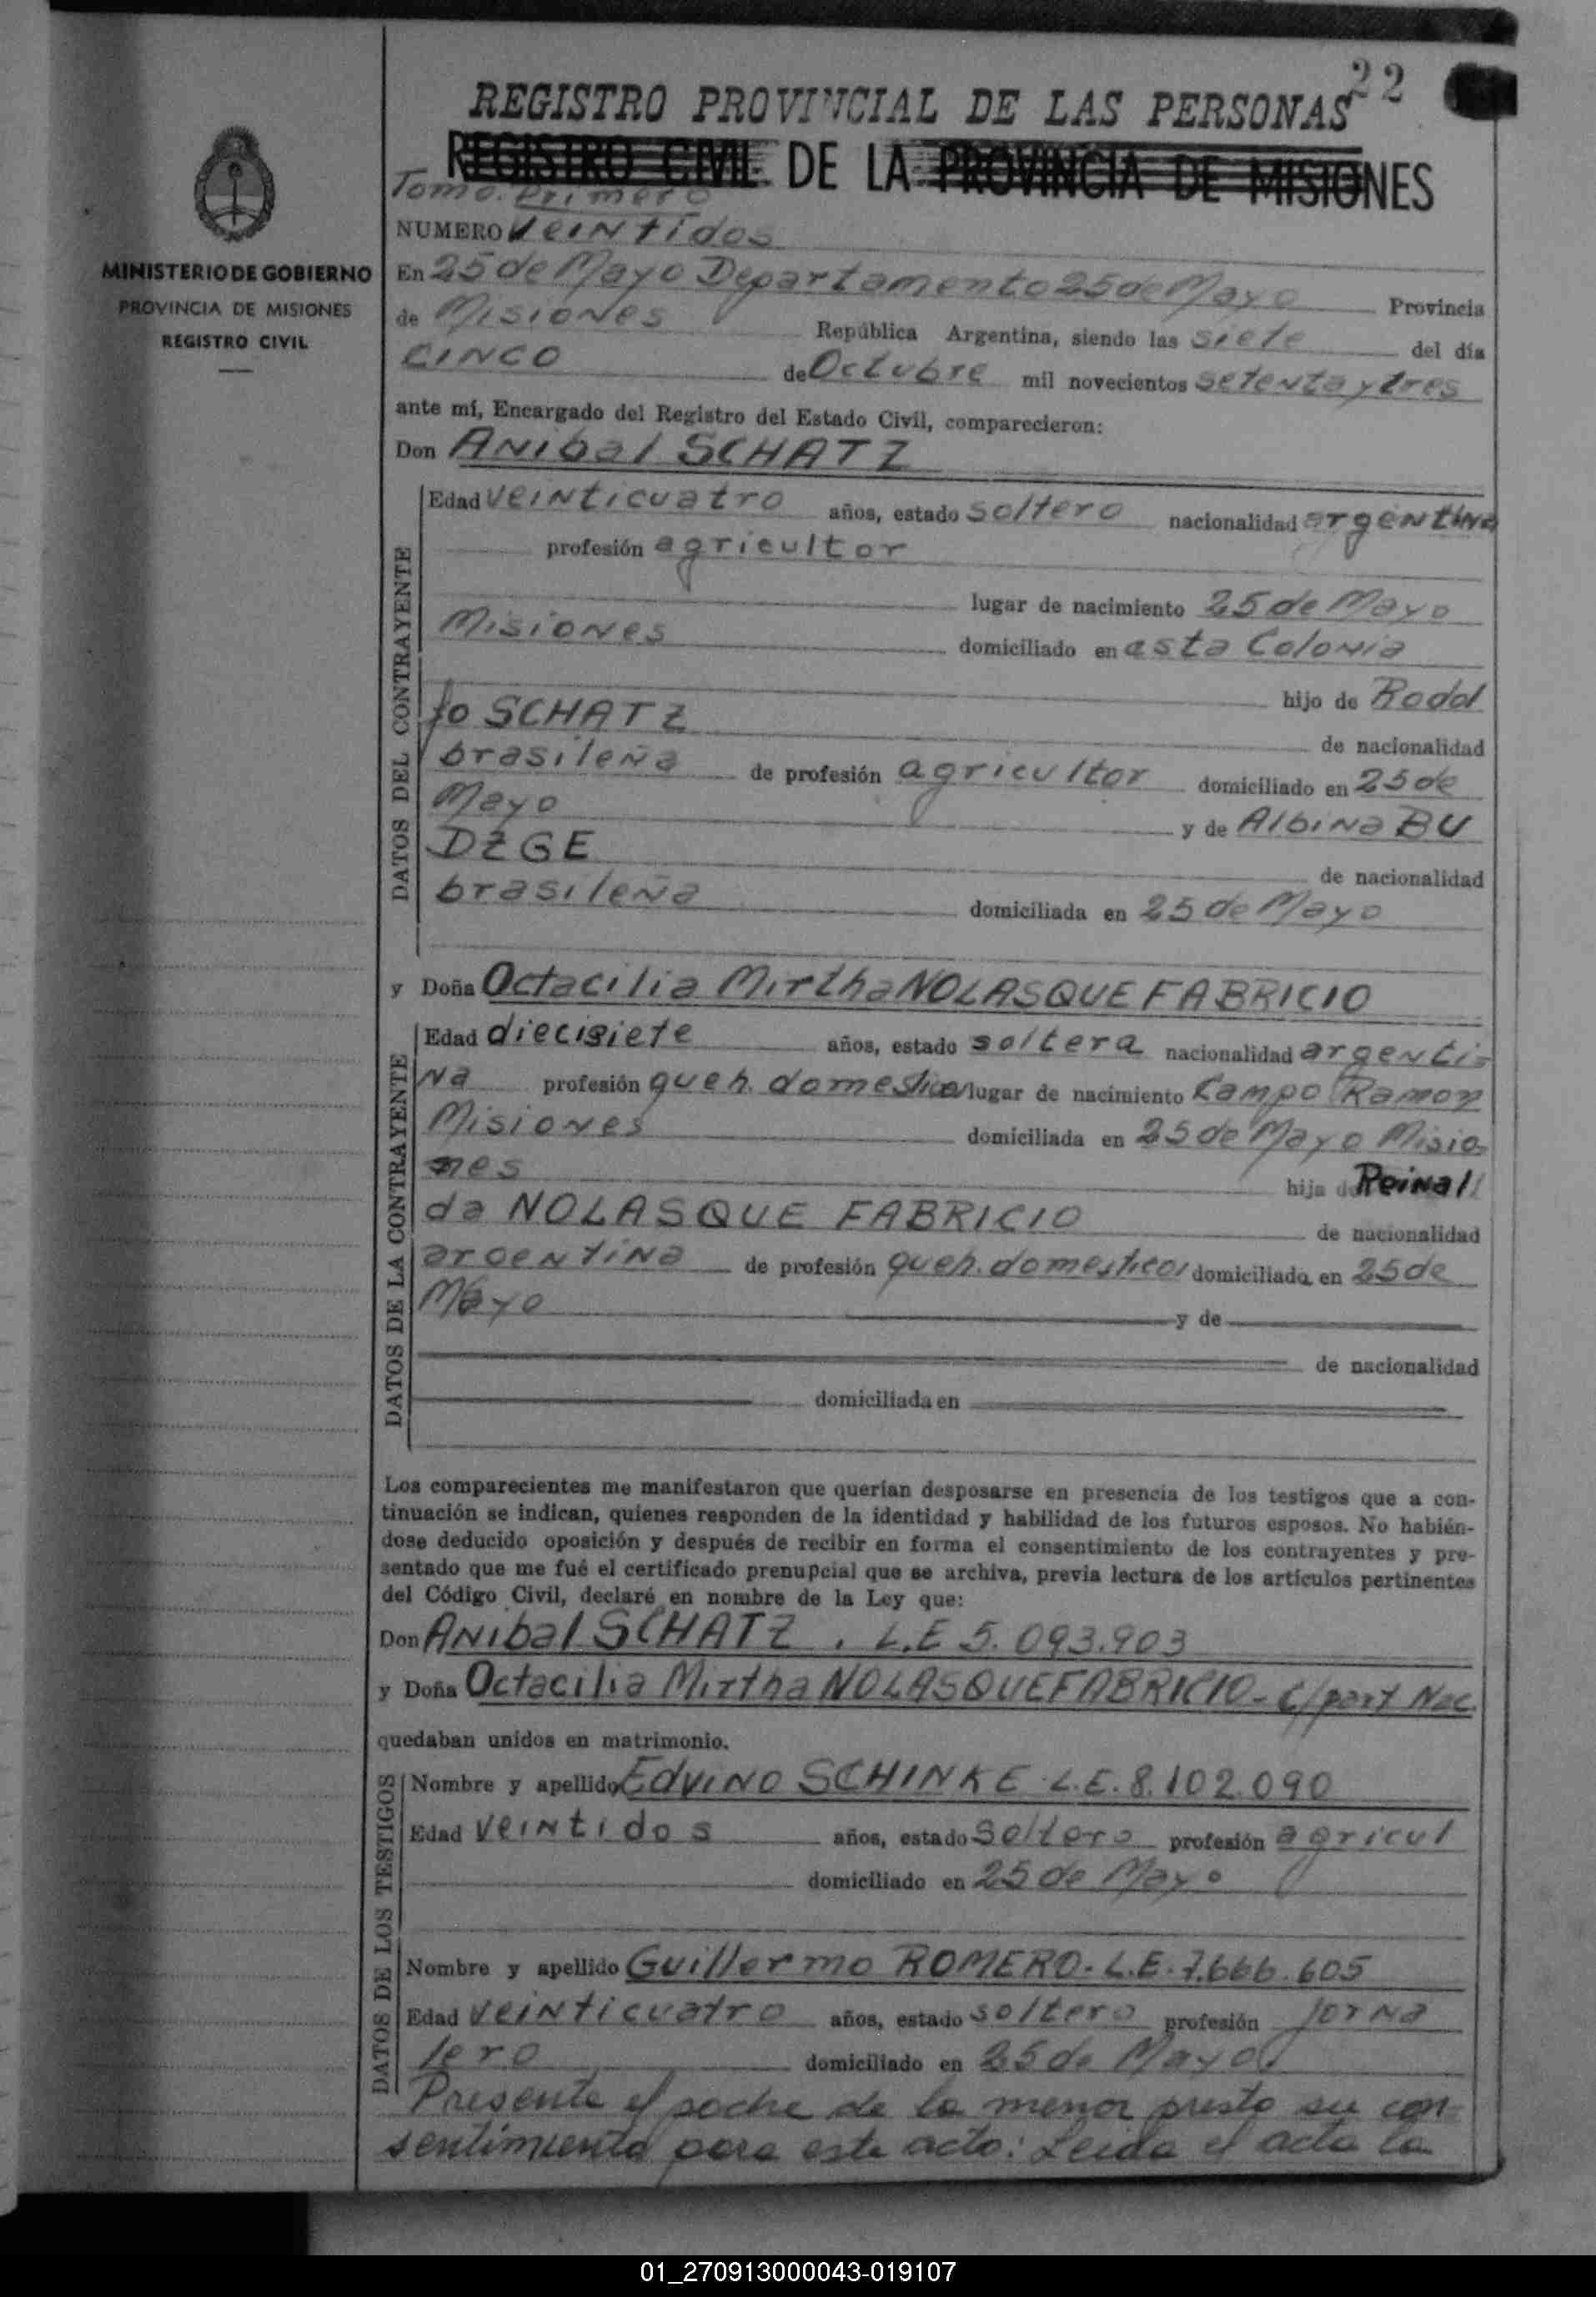 22
REGISTRO PROVINCIAL DE LAS PERSONAS
REGISTRO CIVIL DE LA PROVINCIA DE MISIONES
Tomo. Primero
MINISTERIO DE GOBIERNO
PROVINCIA DE MISIONES
REGISTRO CIVIL
NUMERO VEINTidos
En 25 de Mayo Departamento 25 de Mayo Provincia
de Misiones República Argentina, siendo las siete del día
CINCO de Octubre mil novecientos setenta y tres
ante mí, Encargado del Registro del Estado Civil, comparecieron:
Don Anibal SCHATZ
DATOS DEL CONTRAYENTE
Edad veinticuatro años, estado soltero nacionalidad argentina
profesión agricultor
lugar de nacimiento 25 de Mayo
Misiones domiciliado en esta Colonia
hijo de Rodol
fo SCHATZ de nacionalidad
brasileña de profesión agricultor domiciliado en 25 de
Mayo y de Albina BU
DZGE de nacionalidad
brasileña domiciliada en 25 de Mayo
y Doña Octacilia Mirtha NOLASQUE FABRICIO
DATOS DE LA CONTRAYENTE
Edad diecisiete años, estado soltera nacionalidad argenti-
na profesión queh. domesticos lugar de nacimiento Campo Ramon
Misiones domiciliada en 25 de Mayo Misio-
nes hija de Reinal
da NOLASQUE FABRICIO de nacionalidad
argentina de profesión queh. domesticos domiciliada en 25 de
Mayo y de
de nacionalidad
domiciliada en
Los comparecientes me manifestaron que querían desposarse en presencia de los testigos que a con-
tinuación se indican, quienes responden de la identidad y habilidad de los futuros esposos. No habién-
dose deducido oposición y después de recibir en forma el consentimiento de los contrayentes y pre-
sentado que me fué el certificado prenupcial que se archiva, previa lectura de los artículos pertinentes
del Código Civil, declaré en nombre de la Ley que:
Don Anibal SCHATZ . L.E 5.093.903
y Doña Octacilia Mirtha NOLASQUE FABRICIO - C/part Nac.
quedaban unidos en matrimonio.
DATOS DE LOS TESTIGOS
Nombre y apellido Edvino SCHINKE L.E. 8.102.090
Edad veintidos años, estado Soltero profesión agricul
domiciliado en 25 de Mayo
Nombre y apellido Guillermo ROMERO. L.E. 7.666.605
Edad veinticuatro años, estado soltero profesión jorna
lero domiciliado en 25 de Mayo.
Presente el padre de la menor presto su con-
sentimiento para este acto: Leida el acta la
01_270913000043-019107